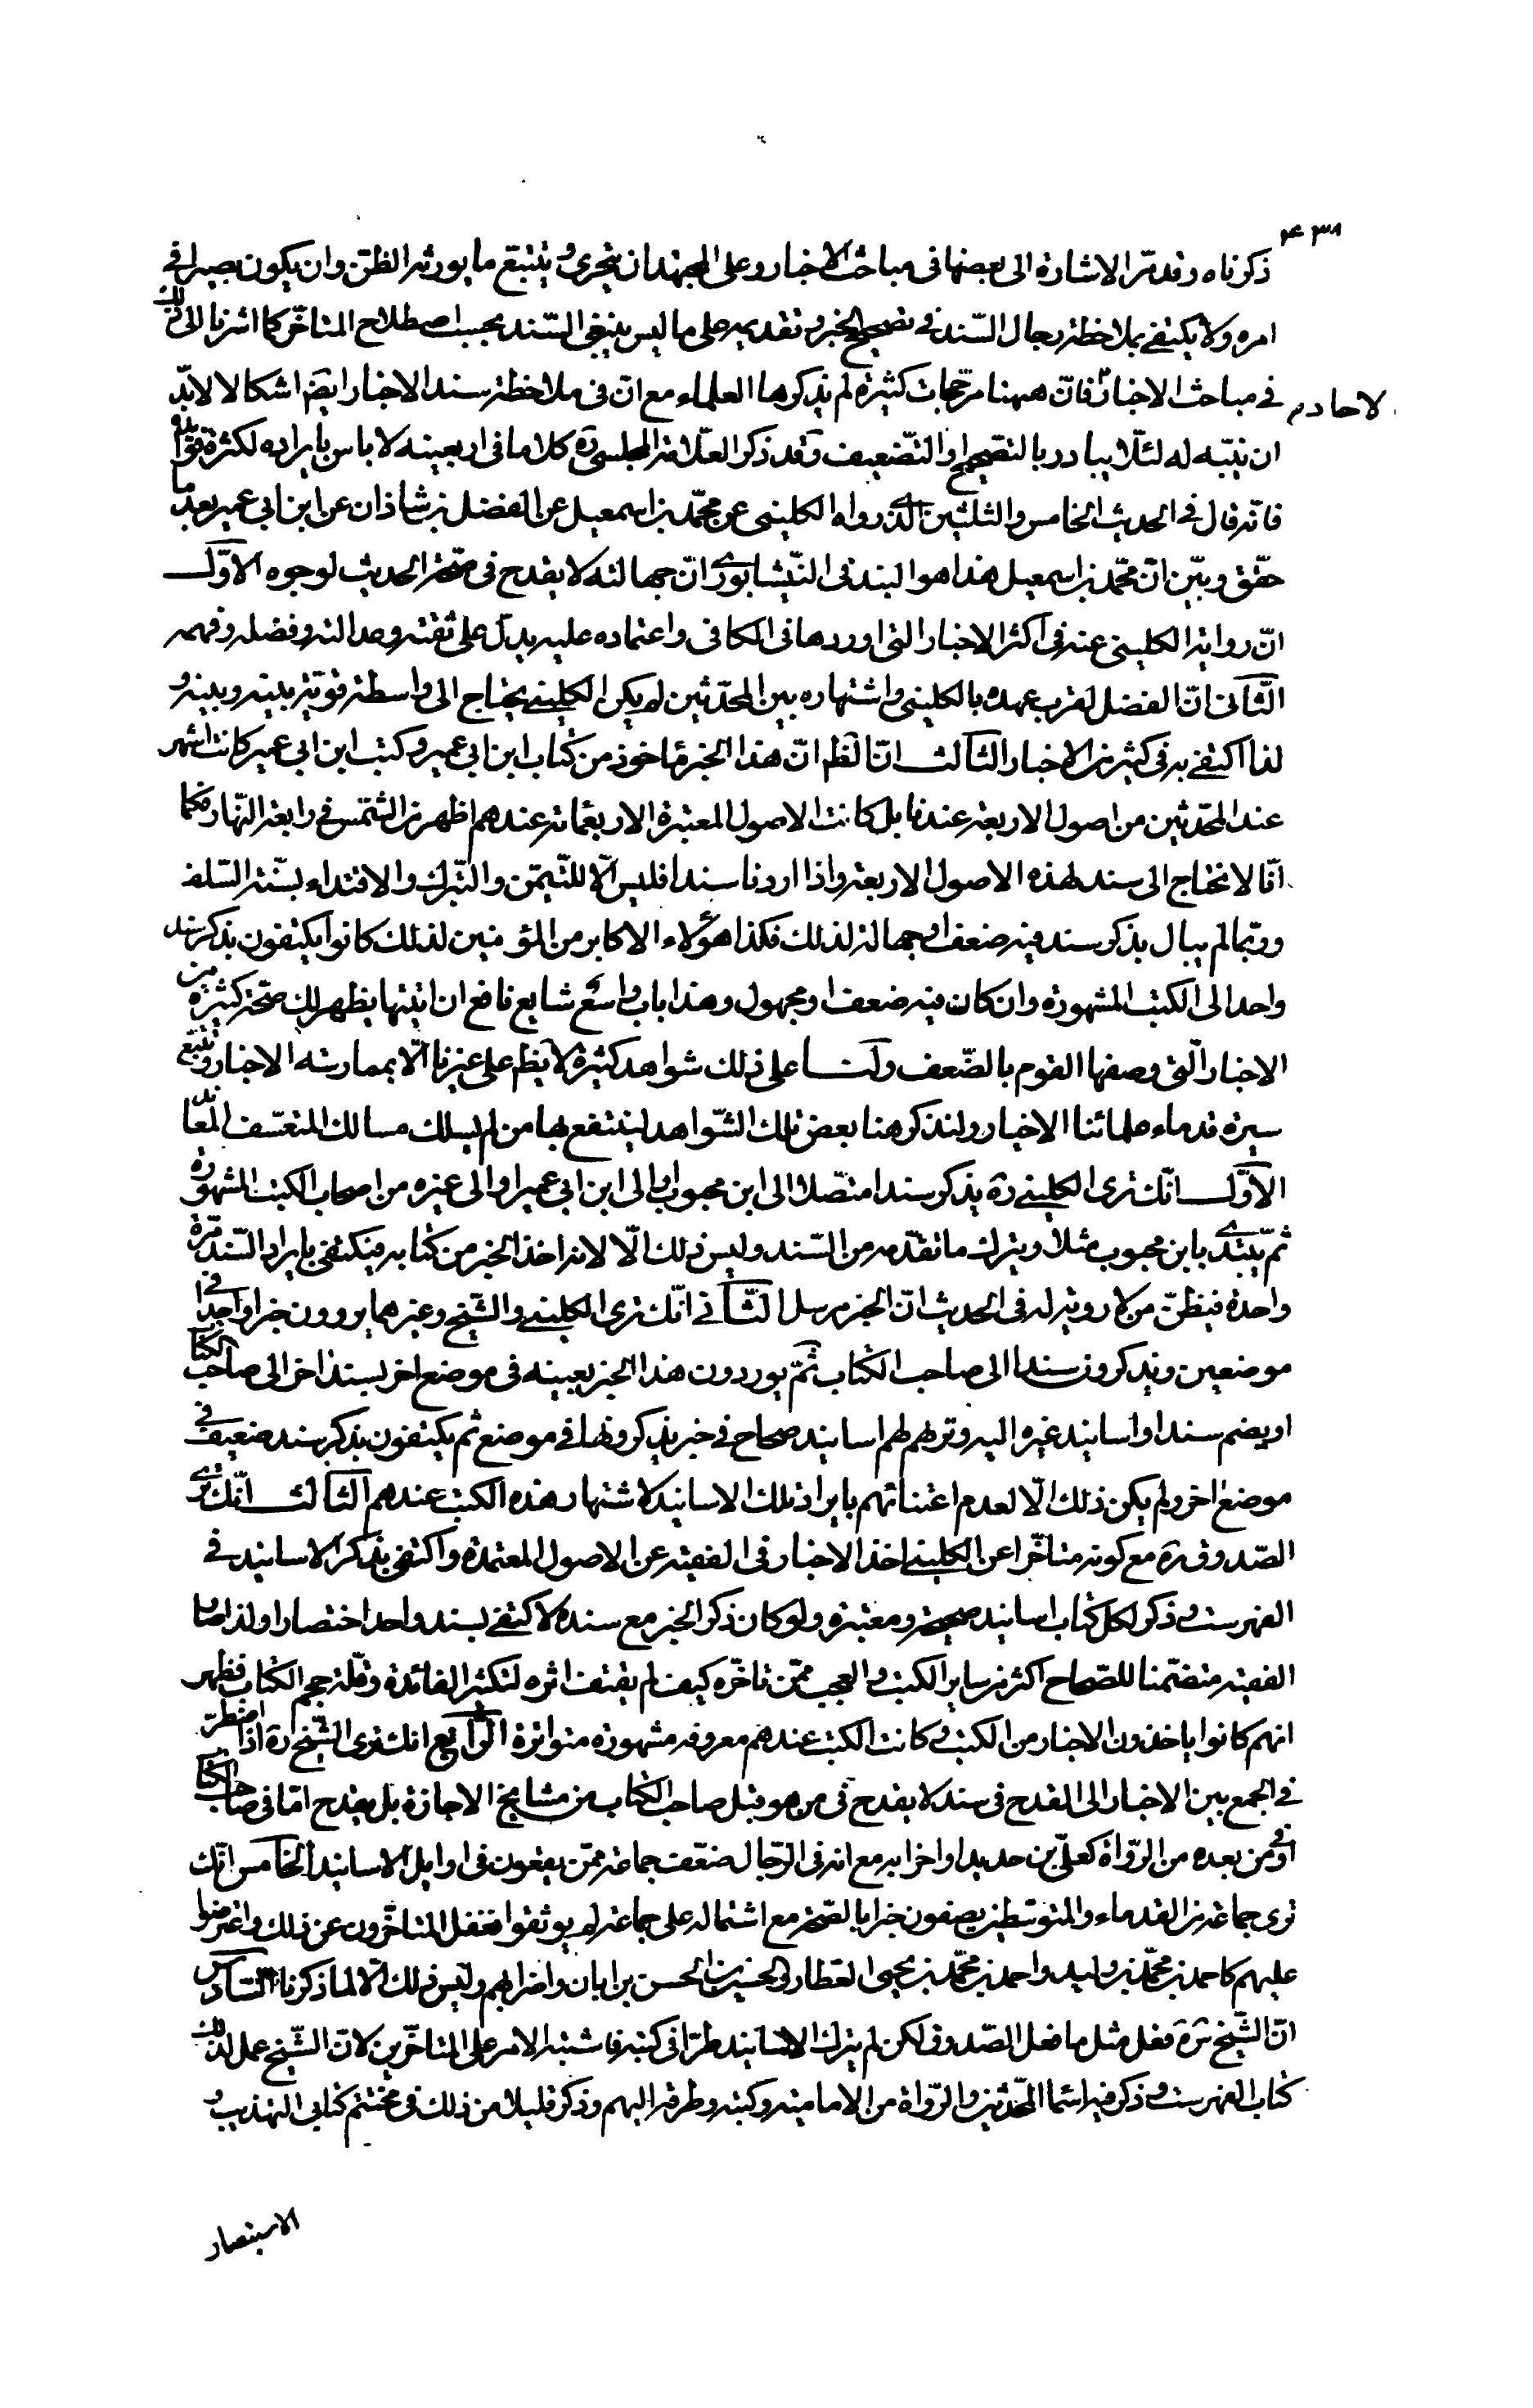 ۴۳۸
ذكرناه وقد مرّ الاشارة الى بعضها فى مباحث الاخبار وعلى المجتهد ان يتحرى و يتتبع ما يورثه الظن وان يكون بصيرا فى
امره ولا يكتفى بملاحظة رجال السّند فى تصحيح الخبر و تقديمه على ما ليس بنقى السّند بحسب اصطلاح المتاخّر كما اشرنا الى ذلك
فى مباحث الاخبار فانّ ههنا مرجّحات كثيرة لم يذكروها العلماء مع انّ فى ملاحظة سند الاخبار ايضا اشكالا لابدّ
لاحاد م
ان نتبّه له لئلّا يبادر بالتصحيح او التّضعيف وقد ذكر العلّامة المجلسى ره كلاما فى اربعينه لا باس بايراده لكثرة فوائده
فانه قال فى الحديث الخامس والثلثين الذى رواه الكلينى عن محمّد بن اسمعيل عن الفضل بن شاذان عن ابن ابى عمير بعد ما
حقّق وبيّن انّ محمّد بن اسمعيل هذا هو البندقى النّيشابورى انّ جهالته لا يقدح فى صحّة الحديث لوجوه الاوّل
انّ رواية الكلينى عنه فى اكثر الاخبار التى اوردها فى الكافى واعتماده عليه يدلّ على ثقته وعدالته وفضله وفهمه
الثّانى انّ الفضل لقرب عهده بالكلينى واشتهاره بين المحدّثين لم يكن الكلينى يحتاج الى واسطة قوية بينه وبينه و
لذا اكتفى به فى كثير من الاخبار الثالث انّ الظم انّ هذا الخبر ماخوذ من كتاب ابن ابى عمير وكتب ابن ابى عمير كانت اشهر
عند المحّدثين من اصول الاربعة عندنا بل كانت الاصول المعتبرة الاربعمائة عندهم اظهر من الشّمس فى رابعة النّهار فكما
انّا لا نحتاج الى سند لهذه الاصول الاربعة واذا اردنا سندا فليس الّا للتّيمّن والتّبرك والاقتداء بسنّة السّلف
وربّما لم يبال بذكر سند فيه ضعف او جهالة لذلك فكذا هؤلاء الاكابر من المؤمنين لذلك كانوا يكتفون بذكر سند
واحد الى الكتب المشهورة وان كان فيه ضعف او مجهول وهذا باب واسع شايع نافع ان اتيتها يظهر لك صحّة كثيرة من
الاخبار الّتى وصفها القوم بالضّعف ولنا على ذلك شواهد كثيرة لا يظم على غيرنا الّا بممارسة الاخبار و تتبع
سيرة قدماء علمائنا الاخيار ولنذكر هنا بعض تلك الشّواهد لينتفع بها من لم يسلك مسالك المتعسّف المعاند
الاوّل انّك ترى الكلينى ره يذكر سندا متّصلا الى ابن محبوب او الى ابن ابى عمير او الى غيره من اصحاب الكتب المشهورة
ثم يبتدى بابن محبوب مثلا ويترك ما تقدّمه من السّند وليس ذلك الّا لانه اخذ الخبر من كتابه فيكتفى بايراد السّند مرّة
واحدة فيظنّ من لا روية له فى الحديث انّ الخبر مرسل الثّانى انّك ترى الكلينى والشّيخ وغيرهما يروون خبرا واحدا فى
موضعين ويذكرون سندا الى صاحب الكتاب ثمّ يوردون هذا الخبر بعينه فى موضع اخر بسند اخر الى صاحب الكتاب
او يضم سندا او اسانيد غيره اليه وتراهم لهم اسانيد صحاح فى خبر يذكرونها فى موضع ثم يكتفون بذكر سند ضعيف فى
موضع اخر ولم يكن ذلك الّا لعدم اعتنائهم بايراد تلك الاسانيد لاشتهار هذه الكتب عندهم الثالث انّك ترى
الصّدوق ره مع كونه متاخّرا عن الكلينى اخذ الاخبار فى الفقيه عن الاصول المعتمدة واكتفى بذكر الاسانيد فى
الفهرست و ذكر لكل كتاب اسانيد صحيحة ومعتبرة ولو كان ذكر الخبر مع سنده لاكتفى بسند واحد اختصارا ولذا صار
الفقيه متضمّنا للصّحاح اكثر من ساير الكتب و العجب ممّن تاخّره كيف لم يقتف اثره لتكثير الفائدة وقلّة حجم الكتاب فظهر
انهم كانوا ياخذون الاخبار من الكتب و كانت الكتب عندهم معروفة مشهورة متواترة الرّابع انك ترى الشّيخ ره اذا اضطرّ
فى الجمع بين الاخبار الى القدح فى سند لا يقدح فى من هو قبل صاحب الكتاب من مشايخ الاجازة بل يقدح امّا فى صاحب الكتاب
او فى من بعده من الرّواة كعلىّ بن حديد او اخرابه مع انه فى الرّجال ضعّف جماعة ممّن يقعون فى اوايل الاسانيد الخامس انّك
ترى جماعة من القدماء والمتوسّطين يصفون خبرا بالصّحة مع اشتماله على جماعة لم يوثقوا فغفل المتاخّرون عن ذلك واعترضوا
عليهم كاحمد بن محمّد بن وليد واحمد بن محمّد بن يحيى العطار والحسين بن الحسن بن ابان واضرابهم وليس ذلك الّا لما ذكرنا السّادس
انّ الشّيخ ره فعل مثل ما فعل الصّدوق لكن لم يترك الاسانيد طرّا فى كتبه فاشتبه الامر على المتاخّرين لانّ الشّيخ عمل لذلك
كتاب الفهرست و ذكر فيه اسما المحّدثين والرّواة من الامامية وكتبه وطرقه اليهم وذكر قليلا من ذلك فى مختتم كتابى التهذيب و
الاستبصار